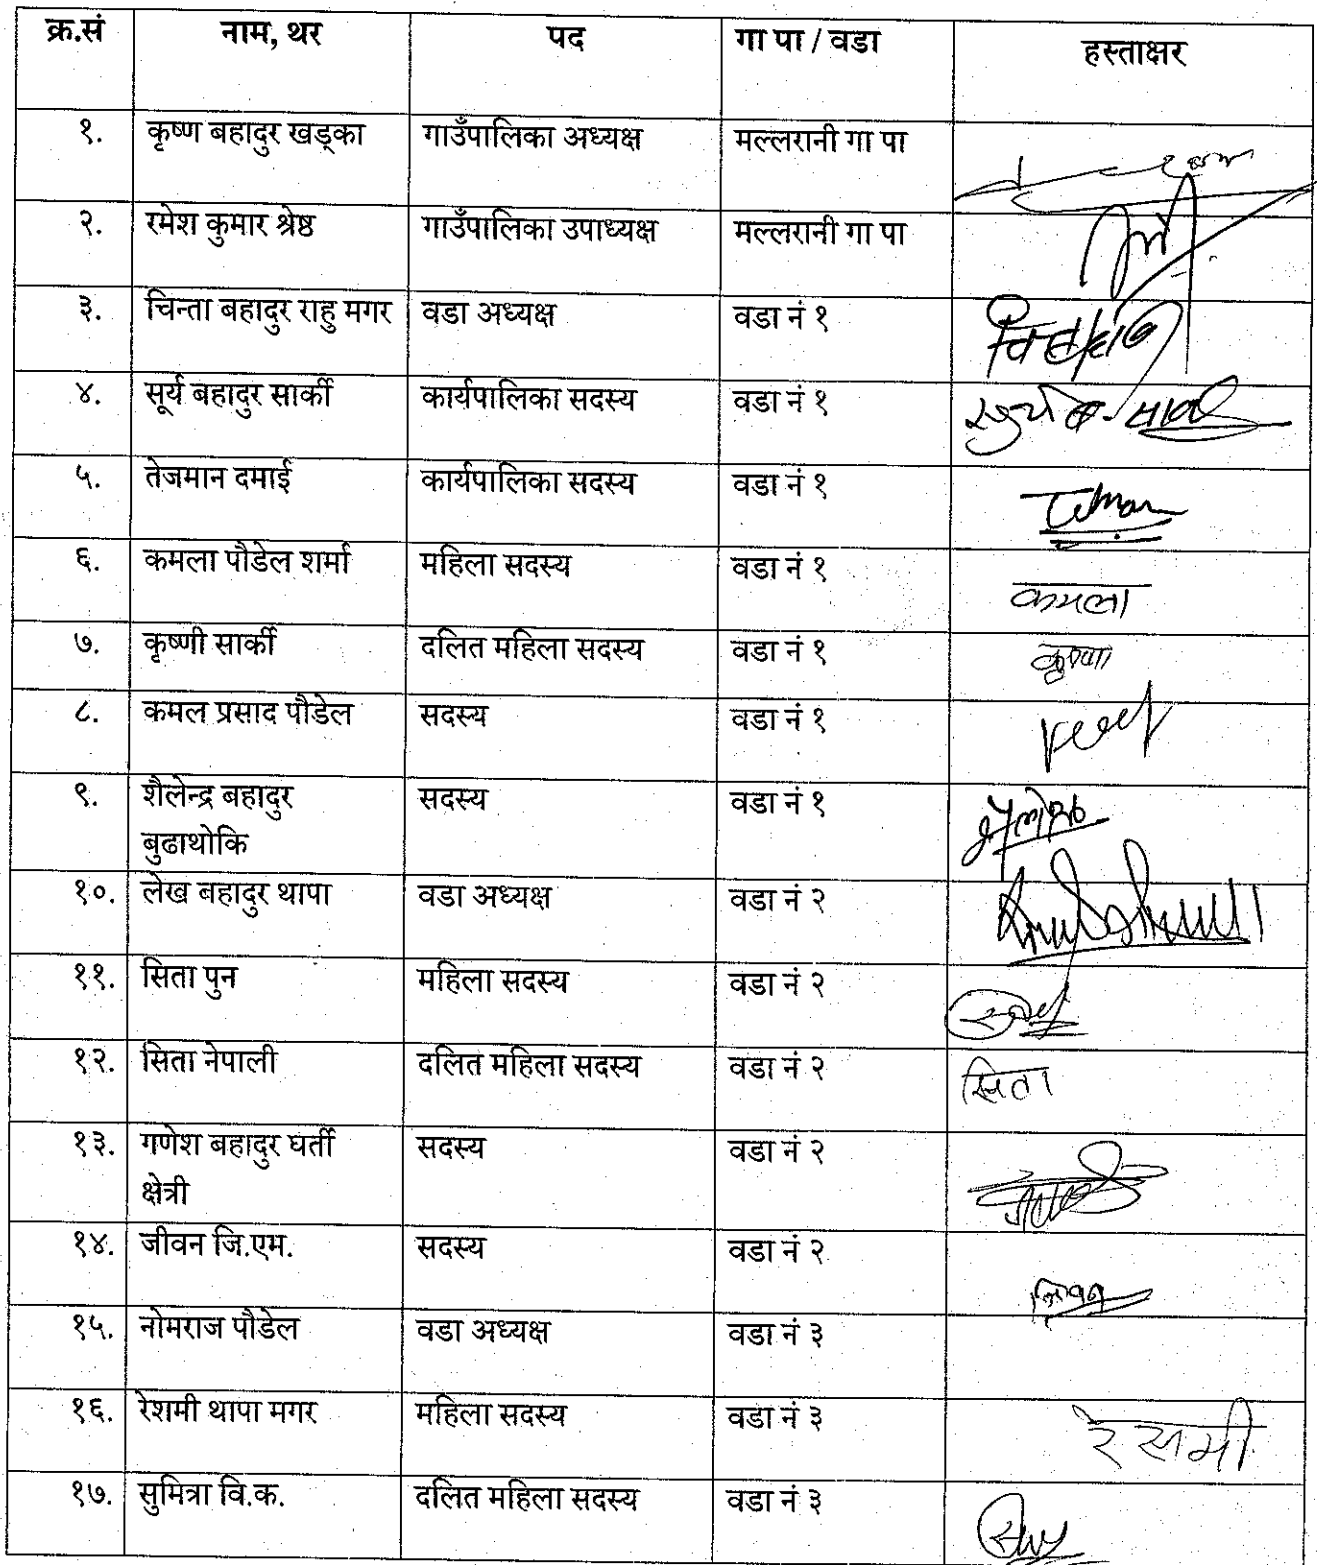 क्र.सं नाम, थर पद गा पा / वडा हस्ताक्षर
१. कृष्ण बहादुर खड्का गाउँपालिका अध्यक्ष मल्लरानी गा पा
२. रमेश कुमार श्रेष्ठ गाउँपालिका उपाध्यक्ष मल्लरानी गा पा
३. चिन्ता बहादुर राहु मगर वडा अध्यक्ष वडा नं १
४. सूर्य बहादुर सार्की कार्यपालिका सदस्य वडा नं १
५. तेजमान दमाई कार्यपालिका सदस्य वडा नं १
६. कमला पौडेल शर्मा महिला सदस्य वडा नं १ कमला
७. कृष्णी सार्की दलित महिला सदस्य वडा नं १
८. कमल प्रसाद पौडेल सदस्य वडा नं १
९. शैलेन्द्र बहादुर सदस्य वडा नं १
बुढाथोकि
१०. लेख बहादुर थापा वडा अध्यक्ष वडा नं २
११. सिता पुन महिला सदस्य वडा नं २
१२. सिता नेपाली दलित महिला सदस्य वडा नं २ सिता
१३. गणेश बहादुर घर्ती सदस्य वडा नं २
क्षेत्री
१४. जीवन जि.एम. सदस्य वडा नं २
१५. नोमराज पौडेल वडा अध्यक्ष वडा नं ३
१६. रेशमी थापा मगर महिला सदस्य वडा नं ३ रेसमी
१७. सुमित्रा वि.क. दलित महिला सदस्य वडा नं ३